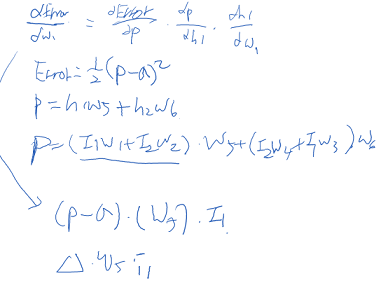 dError/dw₁ = dError/dp · dp/dh1 · dh1/dw₁
Error = 1/2 (P-a)²
P = h1w5 + h2w6
P = (I1w1 + I2w2) · w5 + (I2w4 + I1w3) · w6
(P-a) · (w5) · I1
Δ · w5 i1